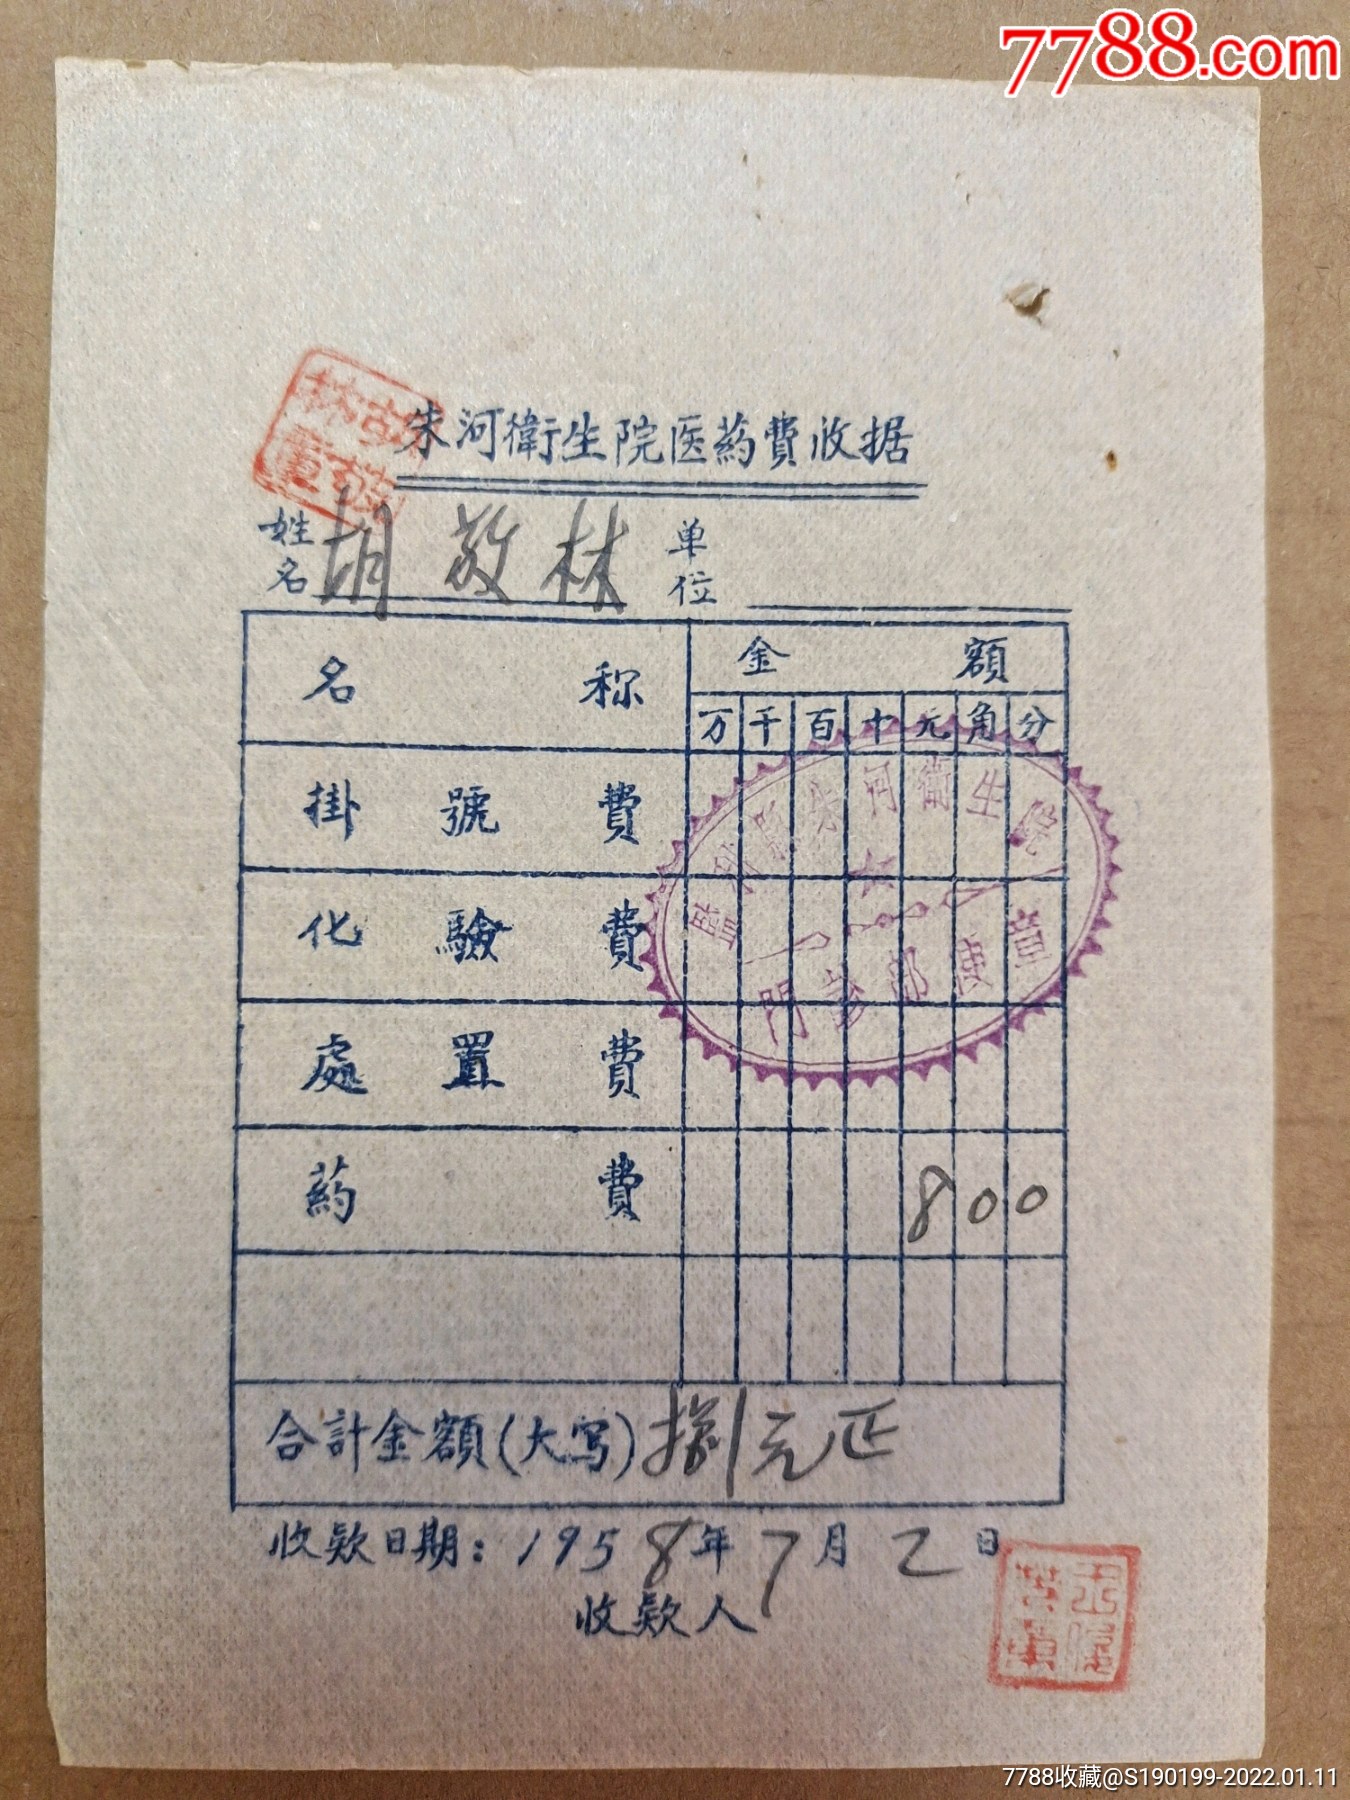 7788.com
朱河衛生院医药費收据
姓名 胡敬林 单位
名称 金額
万 千 百 十 元 角 分
掛號費
化驗費
處置費
药費 8 0 0
合計金額(大写) 捌元正
收款日期: 1958年7月2日
收款人
監利縣朱河衛生院
門診部便章
7788收藏@S190199-2022.01.11